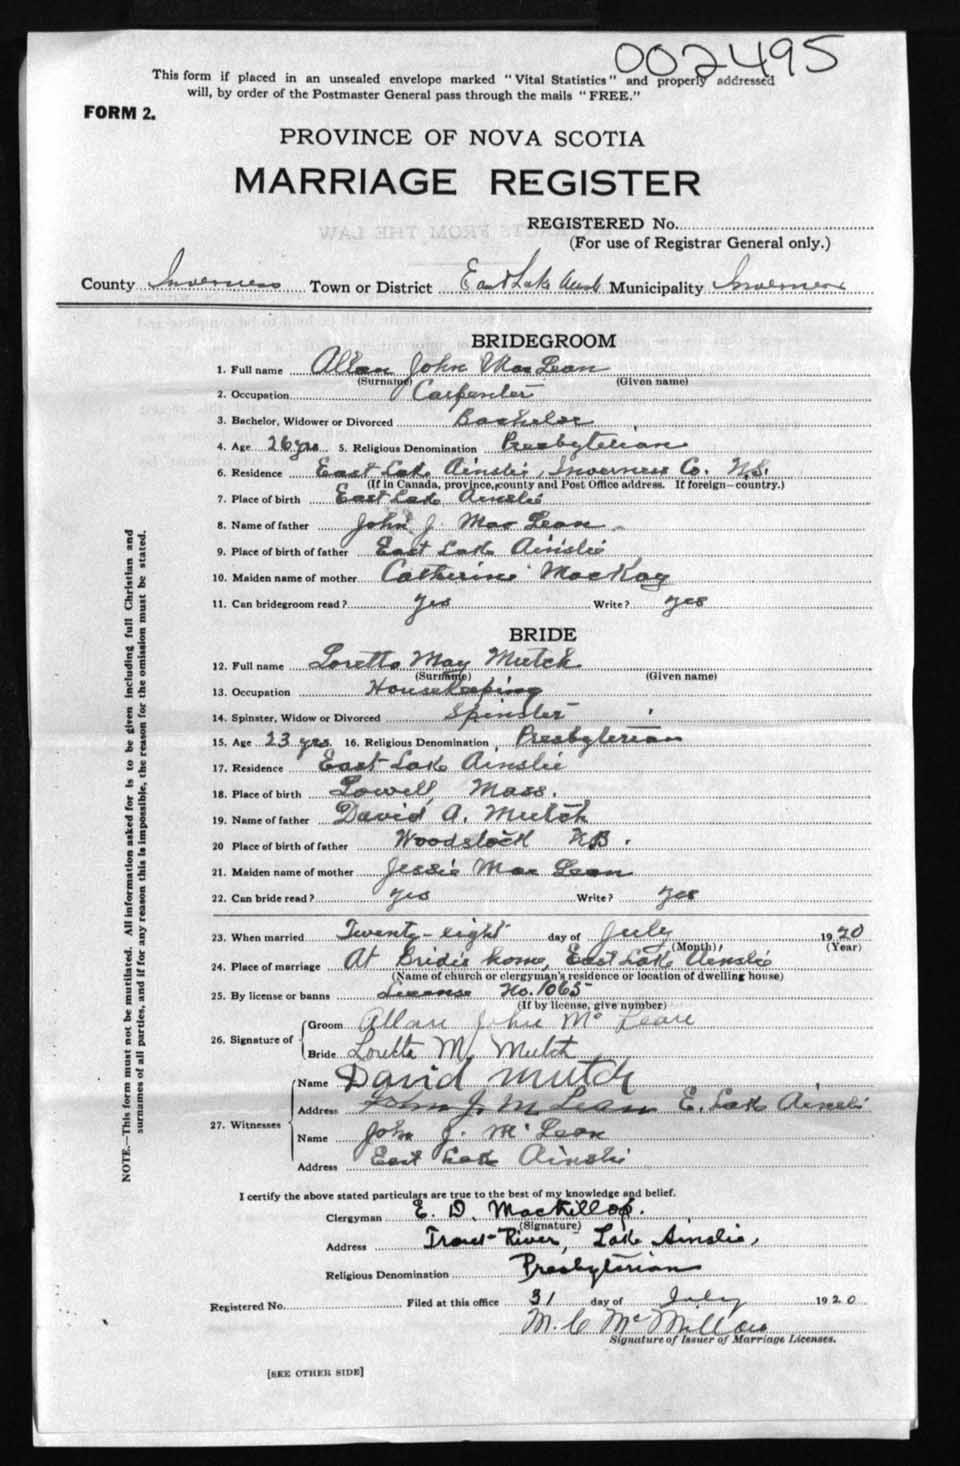 002495
This form if placed in an unsealed envelope marked "Vital Statistics" and properly addressed
will, by order of the Postmaster General pass through the mails "FREE."
FORM 2.
PROVINCE OF NOVA SCOTIA
MARRIAGE REGISTER
REGISTERED No.
(For use of Registrar General only.)
County Inverness Town or District East Lake Ainslie Municipality Inverness
BRIDEGROOM
1. Full name Allan John MacLean
(Surname) (Given name)
2. Occupation Carpenter
3. Bachelor, Widower or Divorced Bachelor
4. Age 26 yrs 5. Religious Denomination Presbyterian
6. Residence East Lake Ainslie, Inverness Co. N.S.
(If in Canada, province, county and Post Office address. If foreign—country.)
7. Place of birth East Lake Ainslie
8. Name of father John J. MacLean
9. Place of birth of father East Lake Ainslie
10. Maiden name of mother Catherine MacKay
11. Can bridegroom read? yes Write? yes
BRIDE
12. Full name Loretto May Mutch
(Surname) (Given name)
13. Occupation Housekeeping
14. Spinster, Widow or Divorced Spinster
15. Age 23 yrs. 16. Religious Denomination Presbyterian
17. Residence East Lake Ainslie
18. Place of birth Lowell, Mass.
19. Name of father David A. Mutch
20 Place of birth of father Woodstock N.B.
21. Maiden name of mother Jessie MacLean
22. Can bride read? yes Write? yes
23. When married Twenty-eight day of July 1920
(Month) (Year)
24. Place of marriage At Bride's home, East Lake Ainslie
(Name of church or clergyman's residence or location of dwelling house)
25. By license or banns License No. 1065
(If by license, give number)
26. Signature of
Groom Allan John McLean
Bride Loretta M. Mutch
27. Witnesses
Name David Mutch
Address John J. McLean E. Lake Ainslie
Name John J. McLean
Address East Lake Ainslie
I certify the above stated particulars are true to the best of my knowledge and belief.
Clergyman E. D. MacKillop.
(Signature)
Address Trout River, Lake Ainslie,
Religious Denomination Presbyterian
Registered No. Filed at this office 31 day of July 1920
M. C. McMillan
Signature of Issuer of Marriage Licenses.
[SEE OTHER SIDE]
NOTE.—This form must not be mutilated. All information asked for is to be given including full Christian and
surnames of all parties, and if for any reason this is impossible, the reason for the omission must be stated.